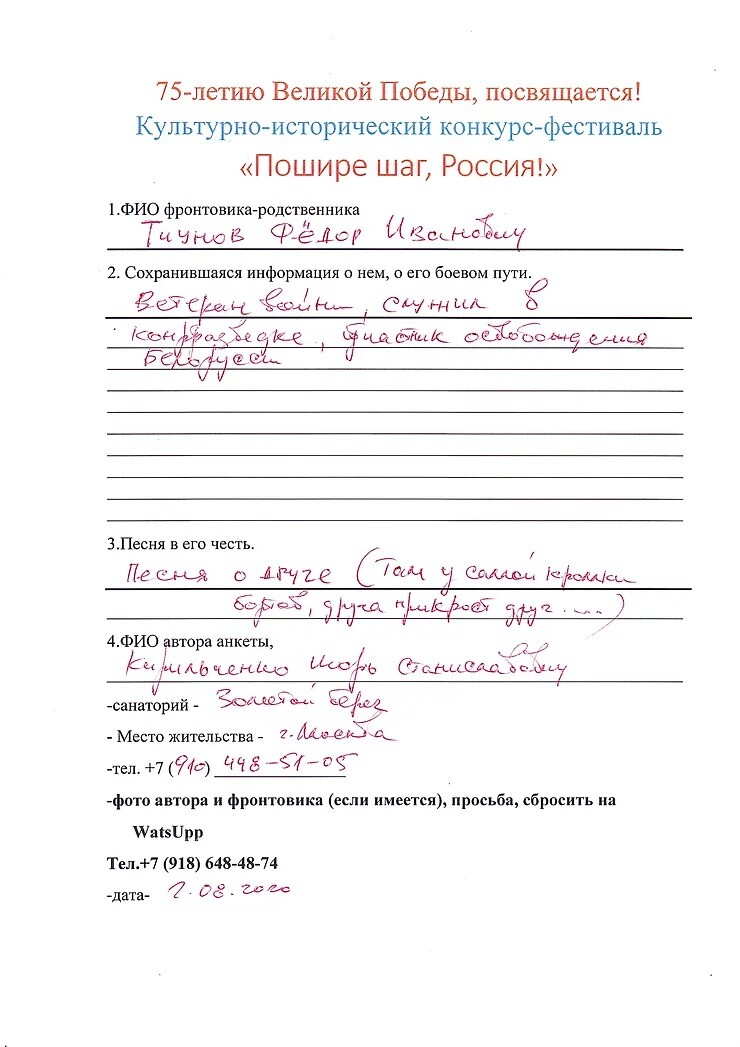 75-летию Великой Победы, посвящается!
Культурно-исторический конкурс-фестиваль
«Пошире шаг, Россия!»
1.ФИО фронтовика-родственника
Тиунов Фёдор Иванович
2. Сохранившаяся информация о нем, о его боевом пути.
Ветеран войны, служил в
контрразведке, участник освобождения
Белорусси
3.Песня в его честь.
Песня о друге (Там у самой кромки
бортов, друга прикроет друг ....)
4.ФИО автора анкеты,
Кирильченко Игорь Станиславович
-санаторий - Золотой берег
- Место жительства - г. Москва
-тел. +7 (910) 448-51-05
-фото автора и фронтовика (если имеется), просьба, сбросить на
WatsUpp
Тел.+7 (918) 648-48-74
-дата- 2.08.2020